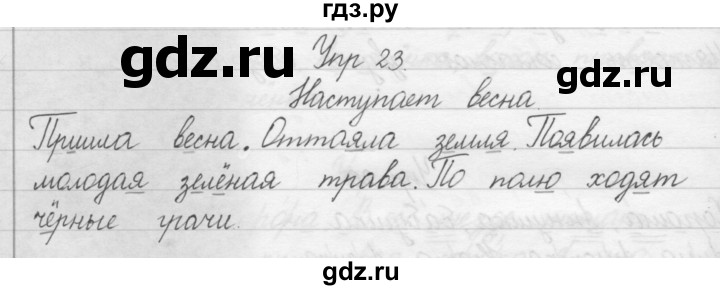 гдз.ру
gdz.ru
gdz.ru
Упр 23.
Наступает весна.
Пришла весна. Оттаяла земля. Появилась
молодая зелёная трава. По полю ходят
чёрные грачи.
gdz.ru
gdz.ru